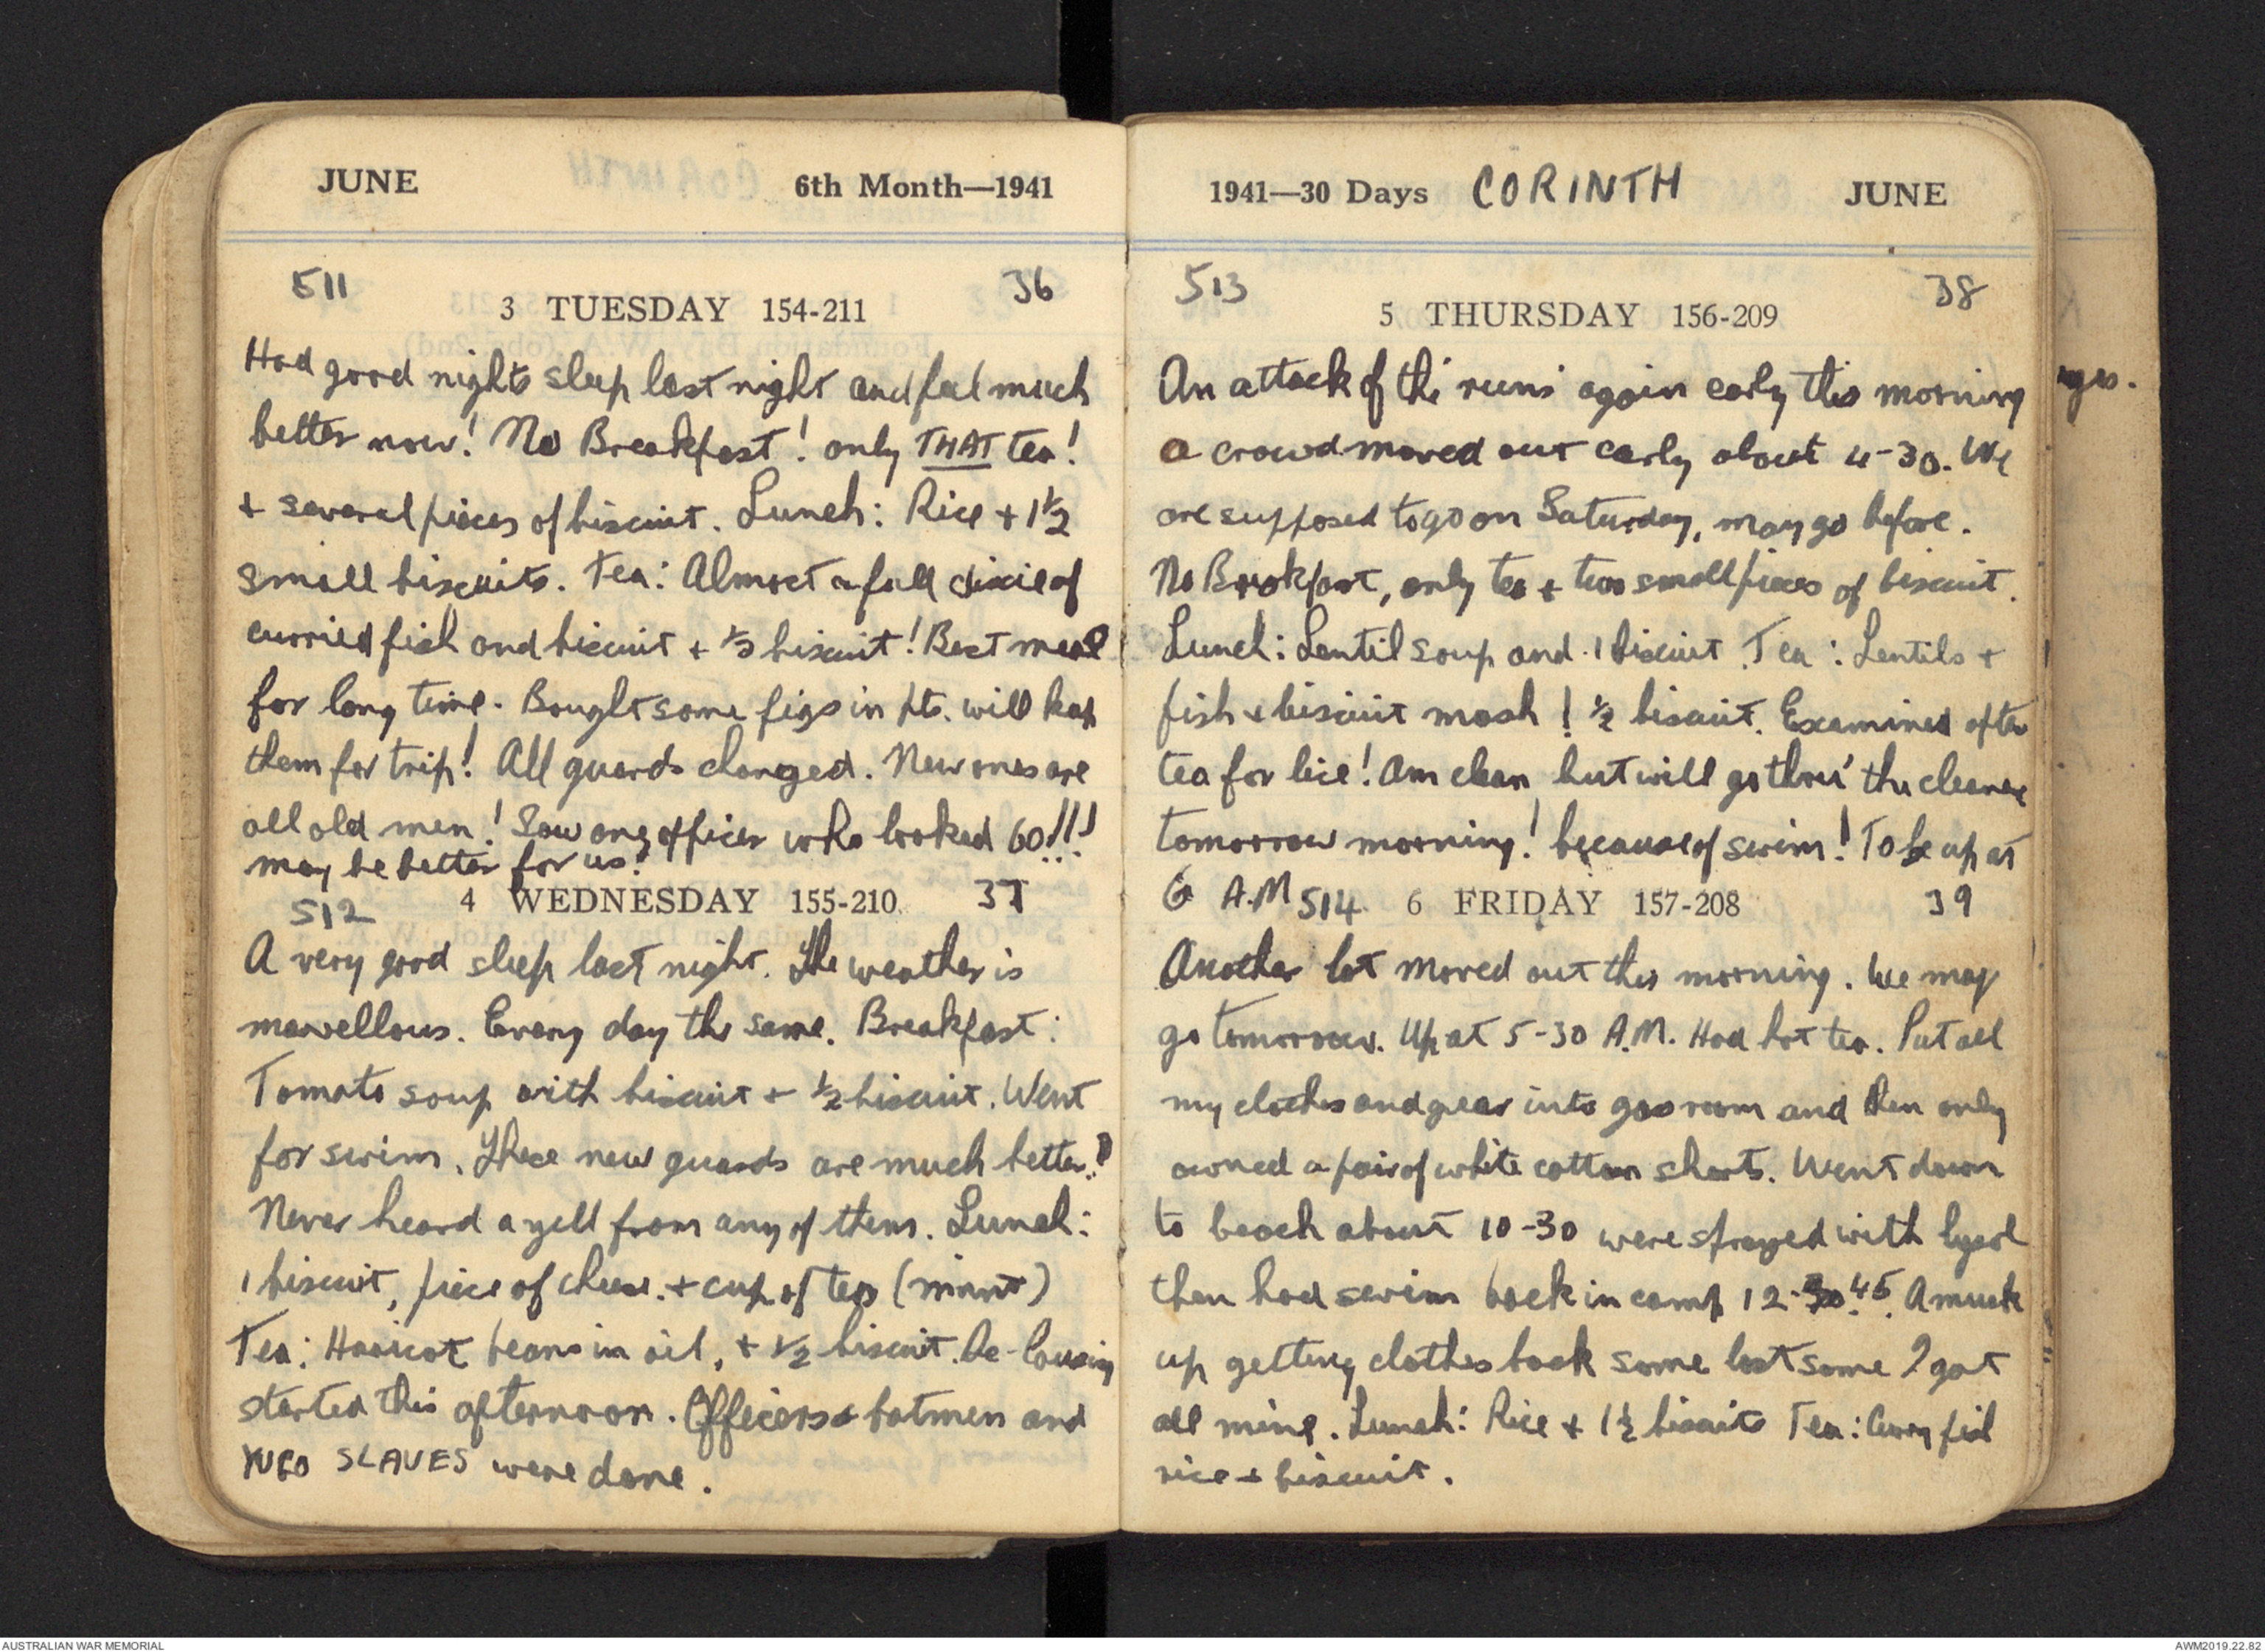 JUNE 6th Month—1941
511 36
3 TUESDAY 154-211
Had good nights sleep last night and feel much
better now! No Breakfast! only THAT tea!
+ several pieces of biscuit. Lunch: Rice + 1½
small biscuits. Tea: Almost a full dixie of
curried fish and biscuit + ½ biscuit! Best meal
for long time. Bought some figs in pts. will keep
them for trip! All guards changed. New ones are
all old men! Saw one officer who looked 60!!!
may be better for us!
4 WEDNESDAY 155-210 37
512
A very good sleep last night. The weather is
marvellous. Every day the same. Breakfast:
Tomato soup with biscuit + ½ biscuit. Went
for swim. These new guards are much better!
Never heard a yell from any of them. Lunch:
1 biscuit, piece of cheese. + cup of tea (mint)
Tea: Haricot beans in oil, + ½ biscuit. De-lousing
started this afternoon. Officers & batmen and
YUGO SLAVES were done.
1941—30 Days CORINTH JUNE
513 38
5 THURSDAY 156-209
An attack of the 'runs' again early this morning
a crowd moved out early about 4-30. We
are supposed to go on Saturday, may go before.
No Breakfast, only tea + two small pieces of biscuit.
Lunch: Lentil soup and 1 biscuit. Tea: Lentils +
fish + biscuit mash! ½ biscuit. Examined after
tea for lice! Am clean but will go thru' the cleaner
tomorrow morning! because of swim! To be up at
6 A.M 514 6 FRIDAY 157-208 39
Another lot moved out this morning. We may
go tomorrow. Up at 5-30 A.M. Had hot tea. Put all
my clothes and gear into gas room and then only
owned a pair of white cotton shorts. Went down
to beach about 10-30 were sprayed with lysol
then had swim back in camp 12-45. A muck
up getting clothes back some lost some I got
all mine. Lunch: Rice + 1½ biscuits Tea: Curry fish
rice + biscuit.
AUSTRALIAN WAR MEMORIAL AWM2019.22.82